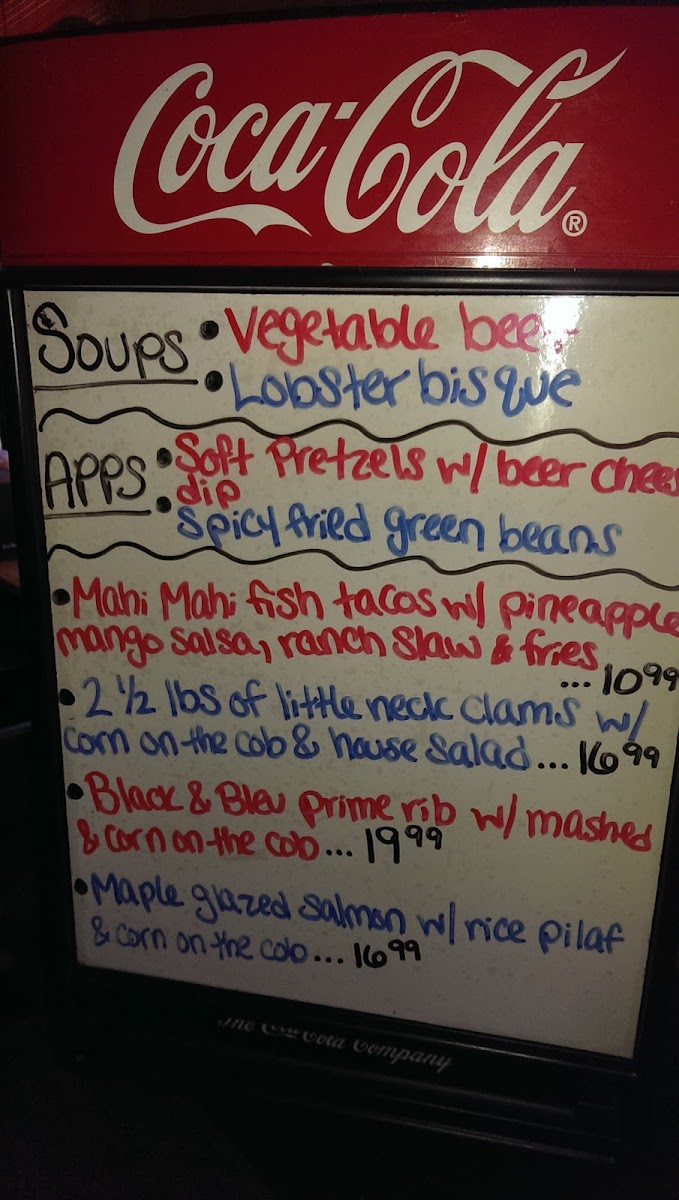 Coca-Cola®
Soups • Vegetable bee
• Lobster bisque
APPS • Soft Pretzels w/ beer chees
dip
• Spicy fried green beans
• Mahi Mahi fish tacos w/ pineapple
mango salsa, ranch slaw & fries
... 10 99
• 2 1/2 lbs of little neck clams w/
corn on the cob & house salad ... 16 99
• Black & Bleu prime rib w/ mashed
& corn on the cob ... 19 99
• Maple glazed salmon w/ rice pilaf
& corn on the cob ... 16 99
The Coca-Cola Company